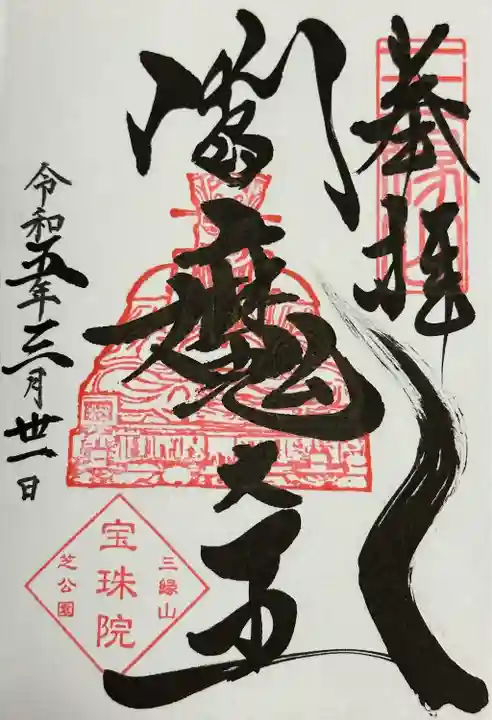 奉拝
閻魔大王
令和五年三月卅一日
三縁山
宝珠院
芝公園